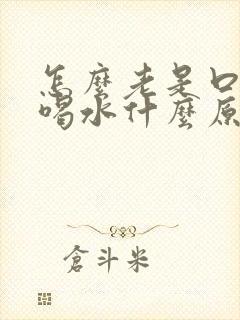 怎麼老是口
喝水什麼原
倉斗米